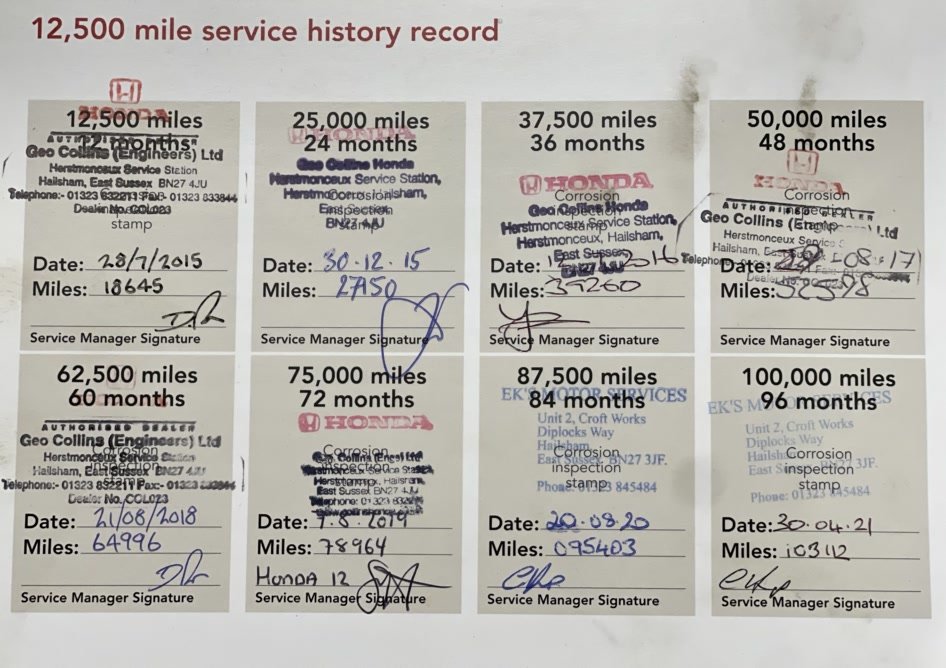 12,500 mile service history record
HONDA
12,500 miles
12 months
AUTHORISED DEALER
Geo Collins (Engineers) Ltd
Herstmonceux Service Station
Hailsham, East Sussex BN27 4JU
Telephone:- 01323 832211 Fax:- 01323 833844
Dealer No. COL023
stamp
Date: 28/7/2015
Miles: 18645
Service Manager Signature
HONDA
25,000 miles
24 months
Geo Collins Honda
Herstmonceux Service Station,
Corrosion
Herstmonceux, Hailsham,
inspection
East Sussex,
BN27 4JU
stamp
Date: 30.12.15
Miles: 2750
Service Manager Signature
37,500 miles
36 months
HONDA
Corrosion
Geo Collins Honda
inspection
Herstmonceux Service Station,
stamp
Herstmonceux, Hailsham,
East Sussex,
BN27 4JU
Date: 2016
Miles: 39260
Service Manager Signature
50,000 miles
48 months
HONDA
Corrosion
AUTHORISED DEALER
inspection
Geo Collins (Engineers) Ltd
stamp
Herstmonceux Service
Hailsham, East
Telephone:-
Date: -08-17
Miles:
Service Manager Signature
62,500 miles
60 months
AUTHORISED DEALER
Geo Collins (Engineers) Ltd
Corrosion
Herstmonceux Service Station
inspection
Hailsham, East Sussex BN27 4JU
stamp
Telephone:- 01323 832211 Fax:- 01323 833844
Dealer No. COL023
Date: 21/08/2018
Miles: 64996
Service Manager Signature
75,000 miles
72 months
HONDA
Corrosion
Geo Collins (Engs) Ltd
inspection
Herstmonceux Service Station
Herstmonceux, Hailsham,
stamp
East Sussex BN27 4JU
Date: 7.8.2019
Miles: 78964
HONDA 12
Service Manager Signature
87,500 miles
EK'S MOTOR SERVICES
84 months
Unit 2, Croft Works
Diplocks Way
Hailsham
Corrosion
East Sussex. BN27 3JF.
inspection
stamp
Phone: 01323 845484
Date: 20.08.20
Miles: 095403
Service Manager Signature
100,000 miles
EK'S MOTOR SERVICES
96 months
Unit 2, Croft Works
Diplocks Way
Hailsham
Corrosion
East Sussex. BN27 3JF.
inspection
stamp
Phone: 01323 845484
Date: 30.04.21
Miles: 103112
Service Manager Signature